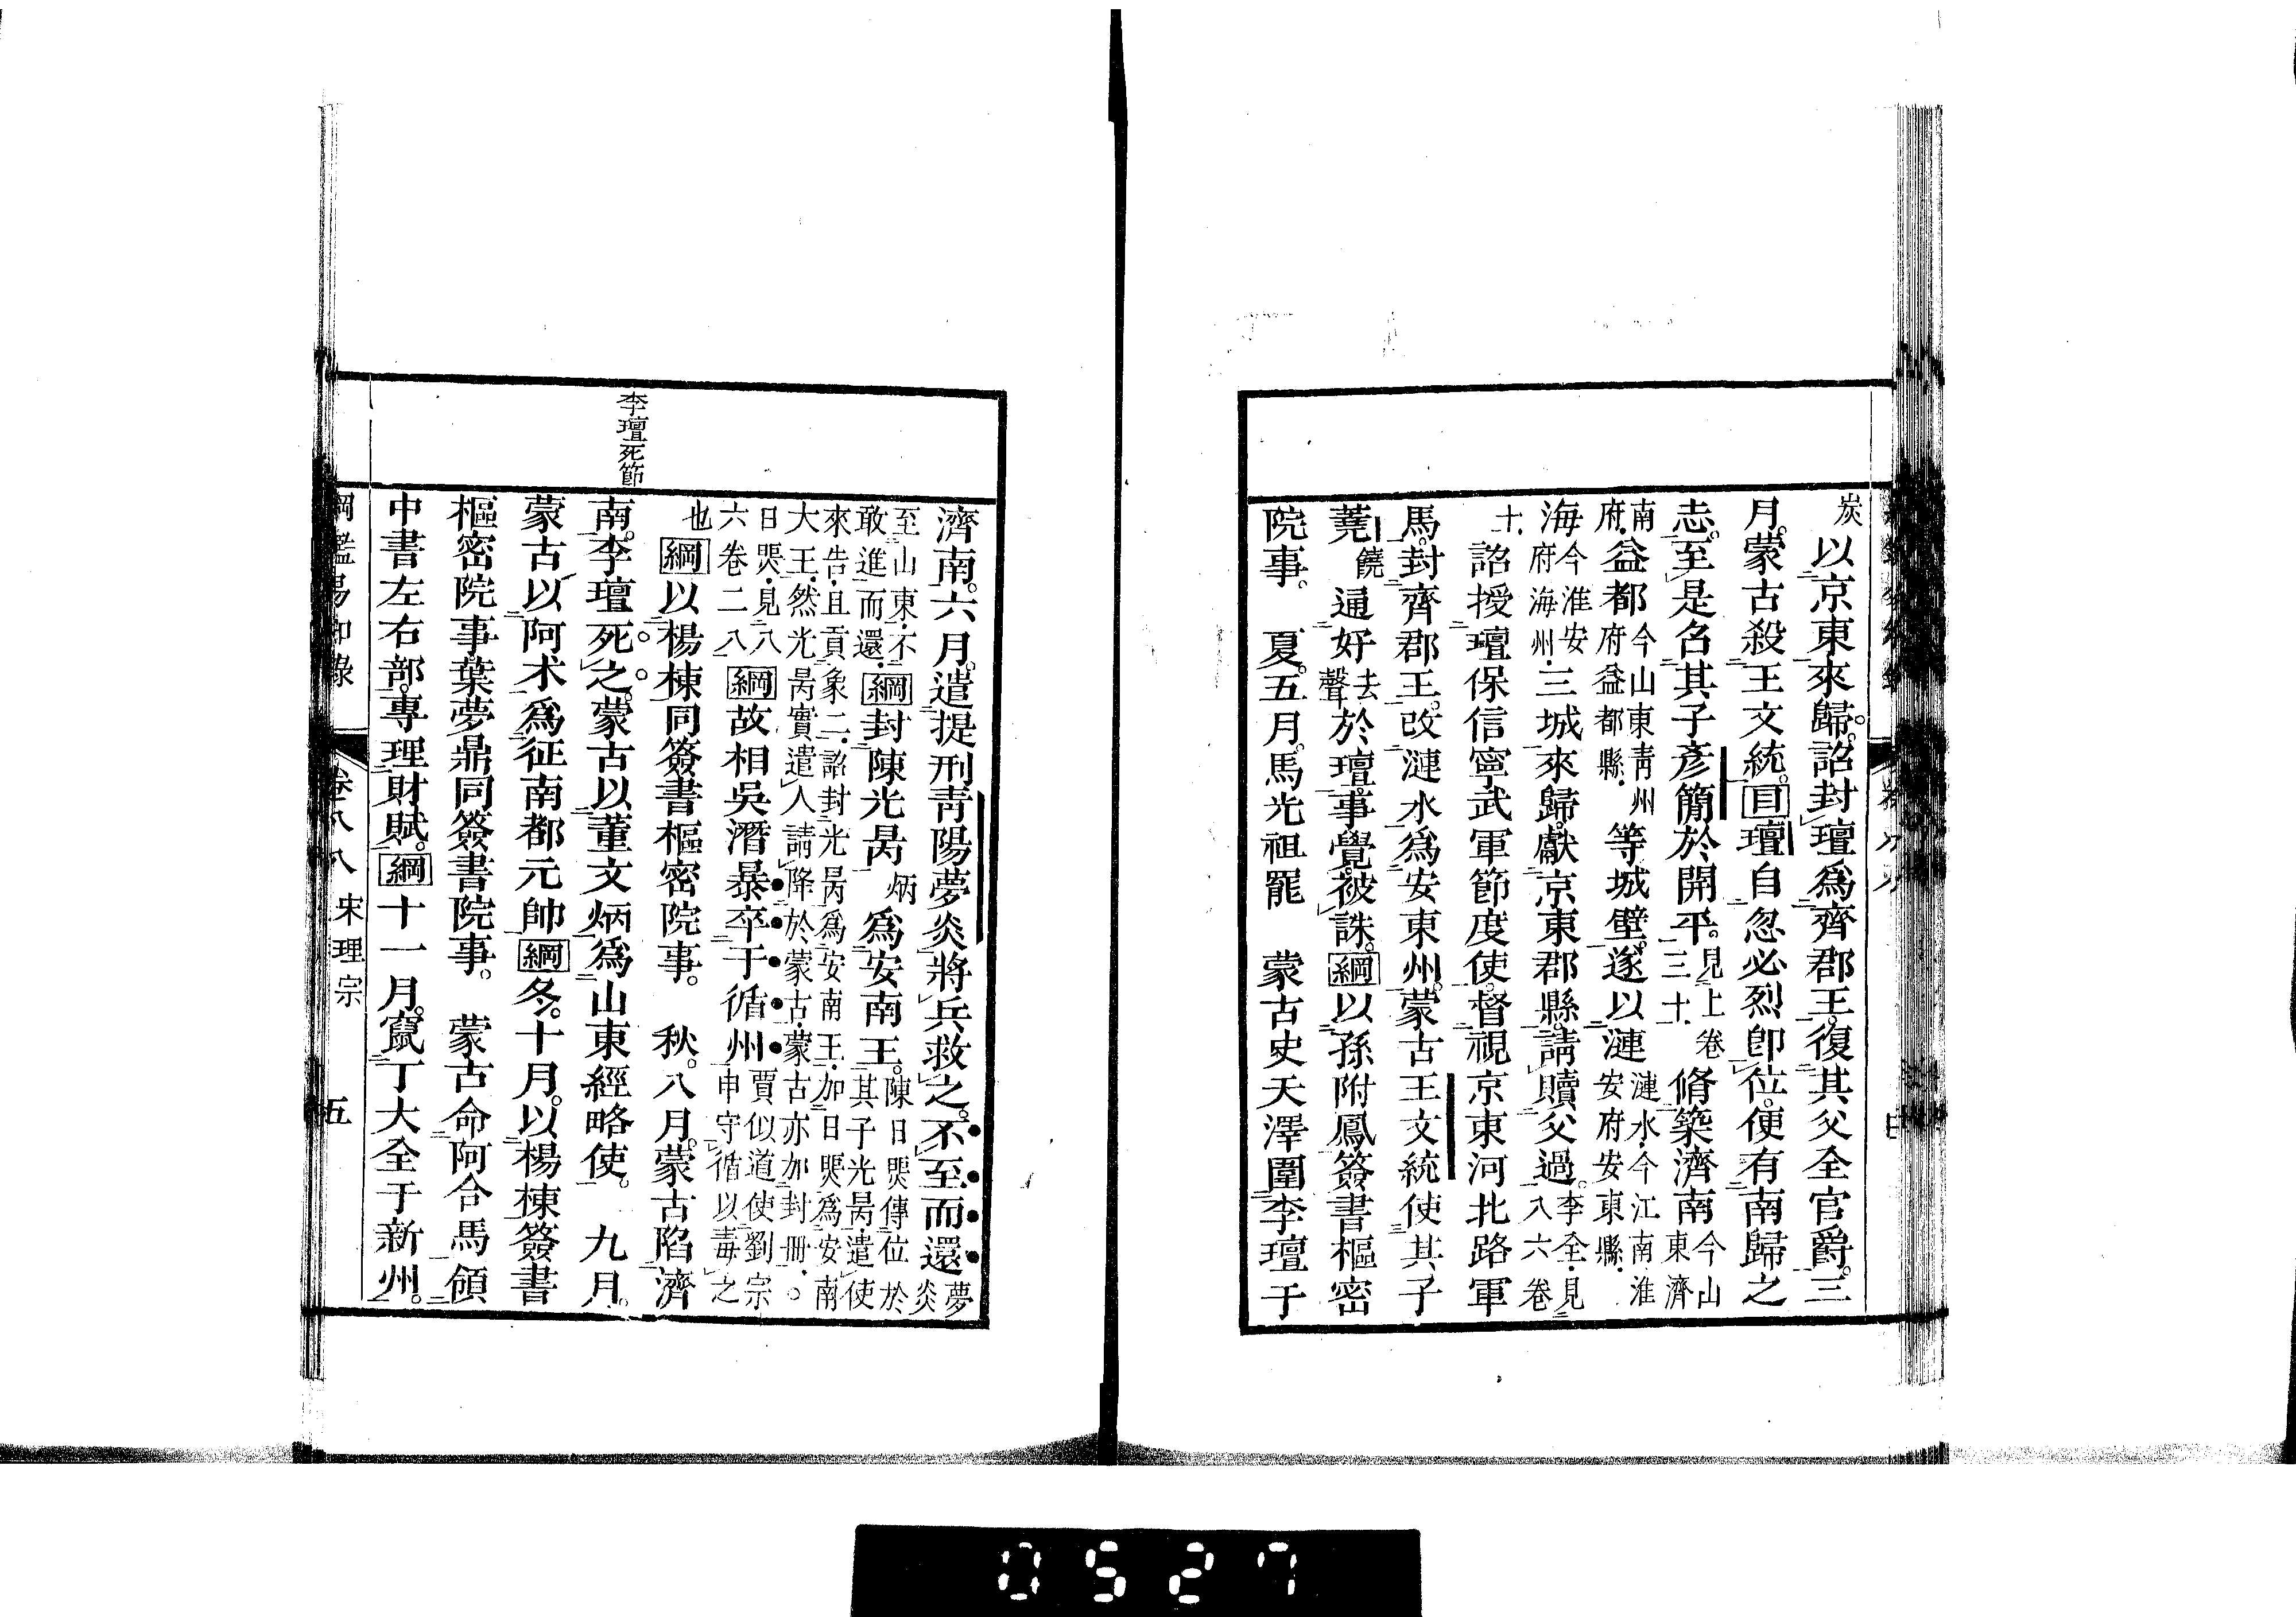 炭以京東來歸。詔封璮爲齊郡王。復其父全官爵。三
月。蒙古殺王文統。目璮自忽必烈卽位。便有南歸之
志。至是名其子彥簡於開平。見上卷三十。脩築濟南今山東濟
南府。益都今山東靑州府益都縣。等城壁。遂以漣漣水。今江南淮安府安東縣。
海今淮安府海州。三城來歸。獻京東郡縣。請贖父過。李全。見八六卷
十。詔授璮保信寧武軍節度使。督視京東河北路軍
馬。封齊郡王。改漣水爲安東州。蒙古王文統使其子
蕘饒通好去聲於璮。事覺。被誅。綱以孫附鳳簽書樞密
院事。 夏。五月。馬光祖罷 蒙古史天澤圍李璮于
李璮死節
濟南。六月。遣提刑靑陽夢炎將兵救之。不至而還夢炎
至山東。不敢進而還。綱封陳光昺炳爲安南王。陳日煚傳位於其子光昺。遣使
來告。且貢象二。詔封光昺爲安南王。加日煚爲安南大王。然光昺實遣人請降於蒙古。蒙古亦加封册。。
日煚。見八六卷二八綱故相吳潛暴卒于循州賈似道使劉宗申守循以毒之
也綱以楊棟同簽書樞密院事。 秋。八月。蒙古陷濟
南。李璮死之。蒙古以董文炳爲山東經略使。 九月。
蒙古以阿术爲征南都元帥綱冬。十月。以楊棟簽書
樞密院事。葉夢鼎同簽書院事。 蒙古命阿合馬領
中書左右部。專理財賦。綱十一月。竄丁大全于新州。
綱鑑易知錄 卷八八 宋理宗 五
0527